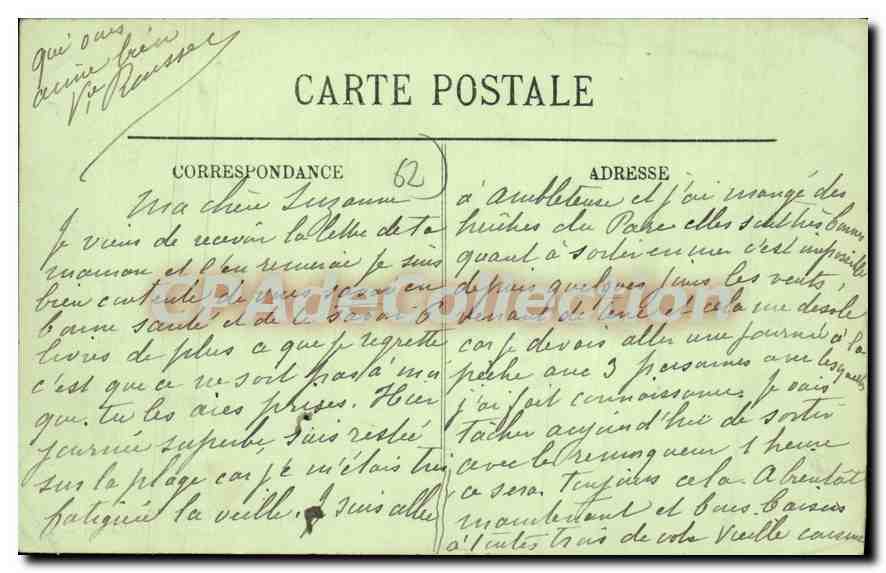 CARTE POSTALE
CORRESPONDANCE
62
ADRESSE
Ma chère Suzanne
Je viens de recevoir la lettre de ta
maman et l'en remercie je suis
bien contente de vous savoir en
bonne santé et de te savoir 6
livres de plus ce que je regrette
c'est que ce ne soit pas à moi
que tu les aies prises. Hier
journée superbe, suis restée
sur la plage car je m'étais très
fatiguée la veille. Je suis allée
à Ambleteuse et j'ai mangé des
huîtres du Parc elles sont très bonnes
quant à sortir en mer c'est impossible
depuis quelques jours les vents
venant de terre et cela me désole
car je devais aller une journée à la
pêche avec 3 personnes avec lesquelles
j'ai fait connaissance. Je vais
tâcher aujourd'hui de sortir
avec le remorqueur 1 heure
ce sera toujours cela. A bientôt
maintenant et bons baisers
à toutes trois de votre vieille cousine
qui vous
aime bien
Ve Roussel
CPAdeCollection